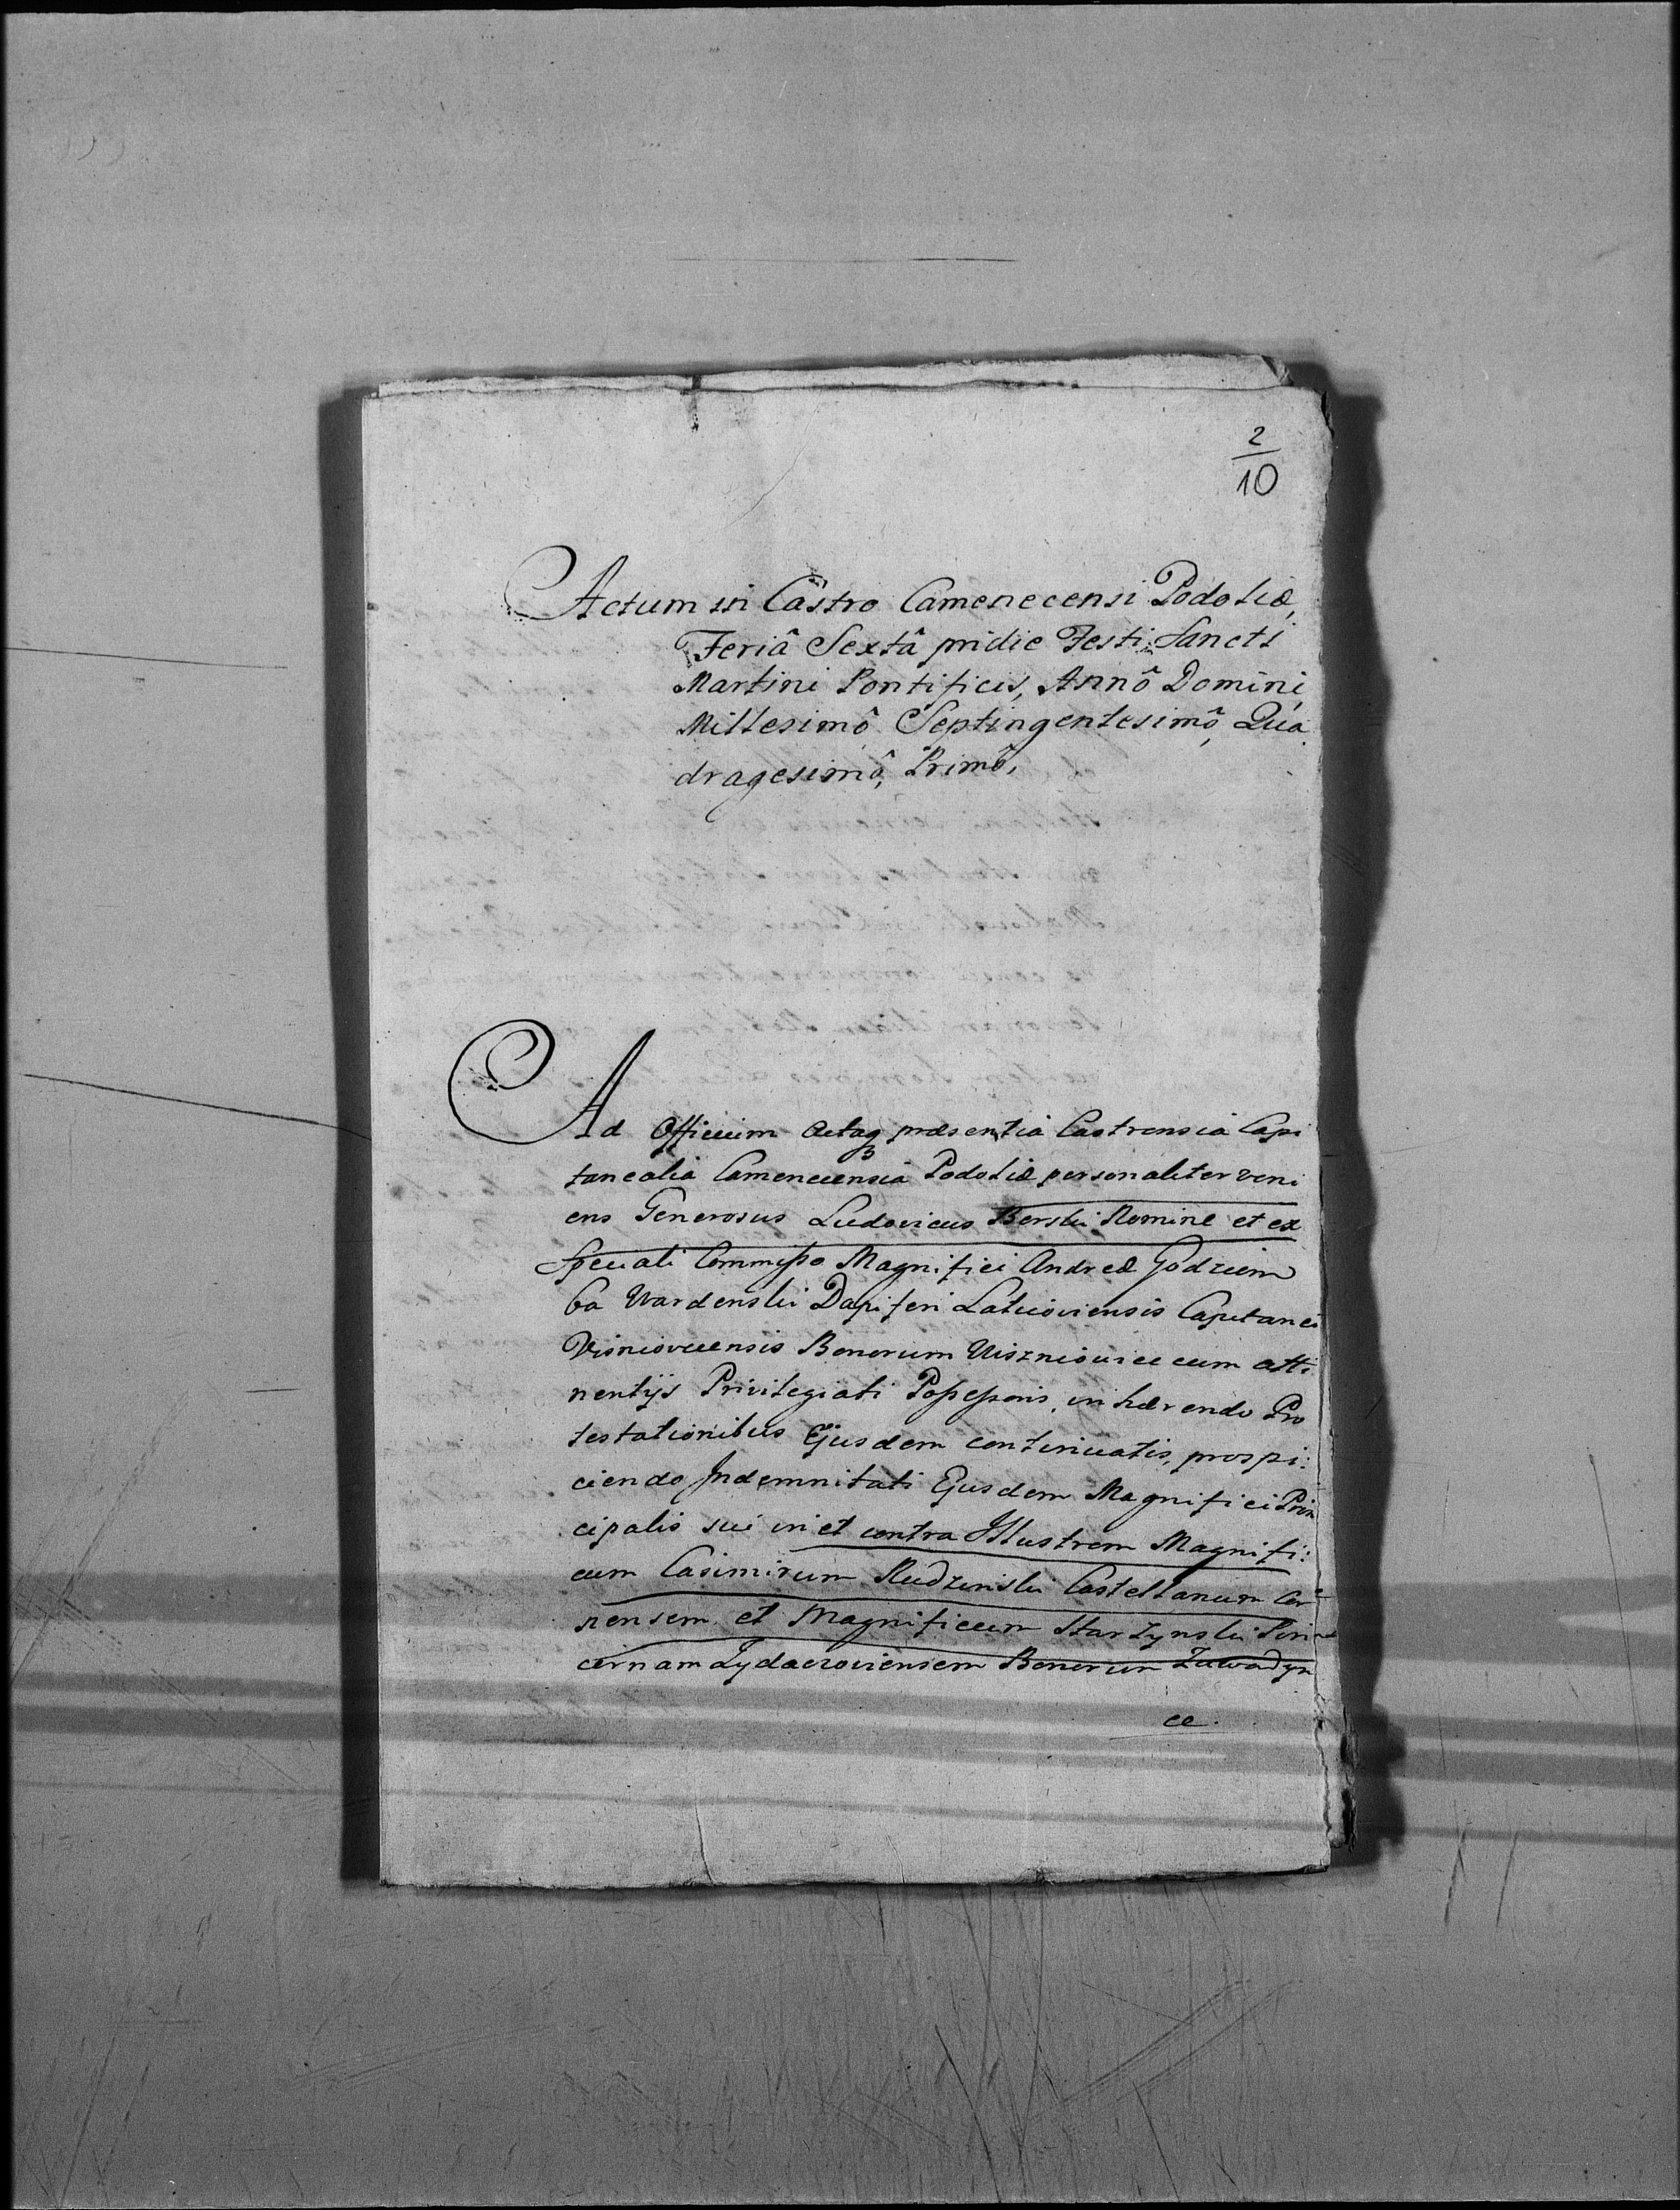 2
10
Actum in Castro Camenecensi Podoliæ,
Feriâ Sextâ pridie Festi Sancti
Martini Pontificis, Annô Domini
Millesimô Septingentesimô, Qua
dragesimô, Primô,
Ad Officium Actaq præsentia Castrensia Capi
tanealia Camenecensia Podoliæ personaliter veni
ens Generosus Ludovicus Berski Nomine et ex
Speciali Commisso Magnifici Andreæ Godziem
ba Wardenski Dapiferi Laticoviensis Capitanei
Visniovecensis Bonorum Wiszniowiec cum atti
nentijs Privilegiati Possessoris, inhærendo Pro
testationibus Ejusdem continuatis, prospi:
ciendo Indemnitati Ejusdem Magnifici Prin
cipalis sui in et contra Illustrem Magnifi:
cum Casimirum Rudzinski Castellanum Cer
nensem et Magnificum Starzynski Pin
cernam Zydaczoviensem Bonorum Zawadyn
ce.